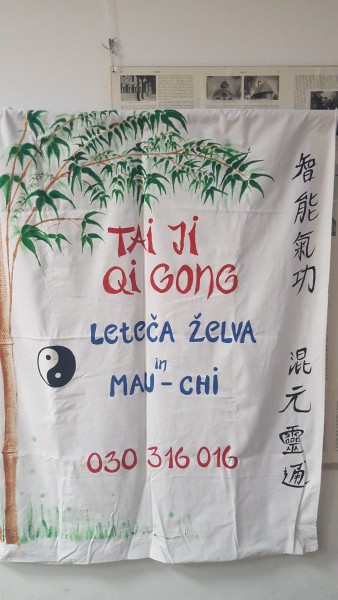 TAI JI
QI GONG
LETEČA ŽELVA
in
MAU - CHI
030 316 016
智能氣功
混元靈通